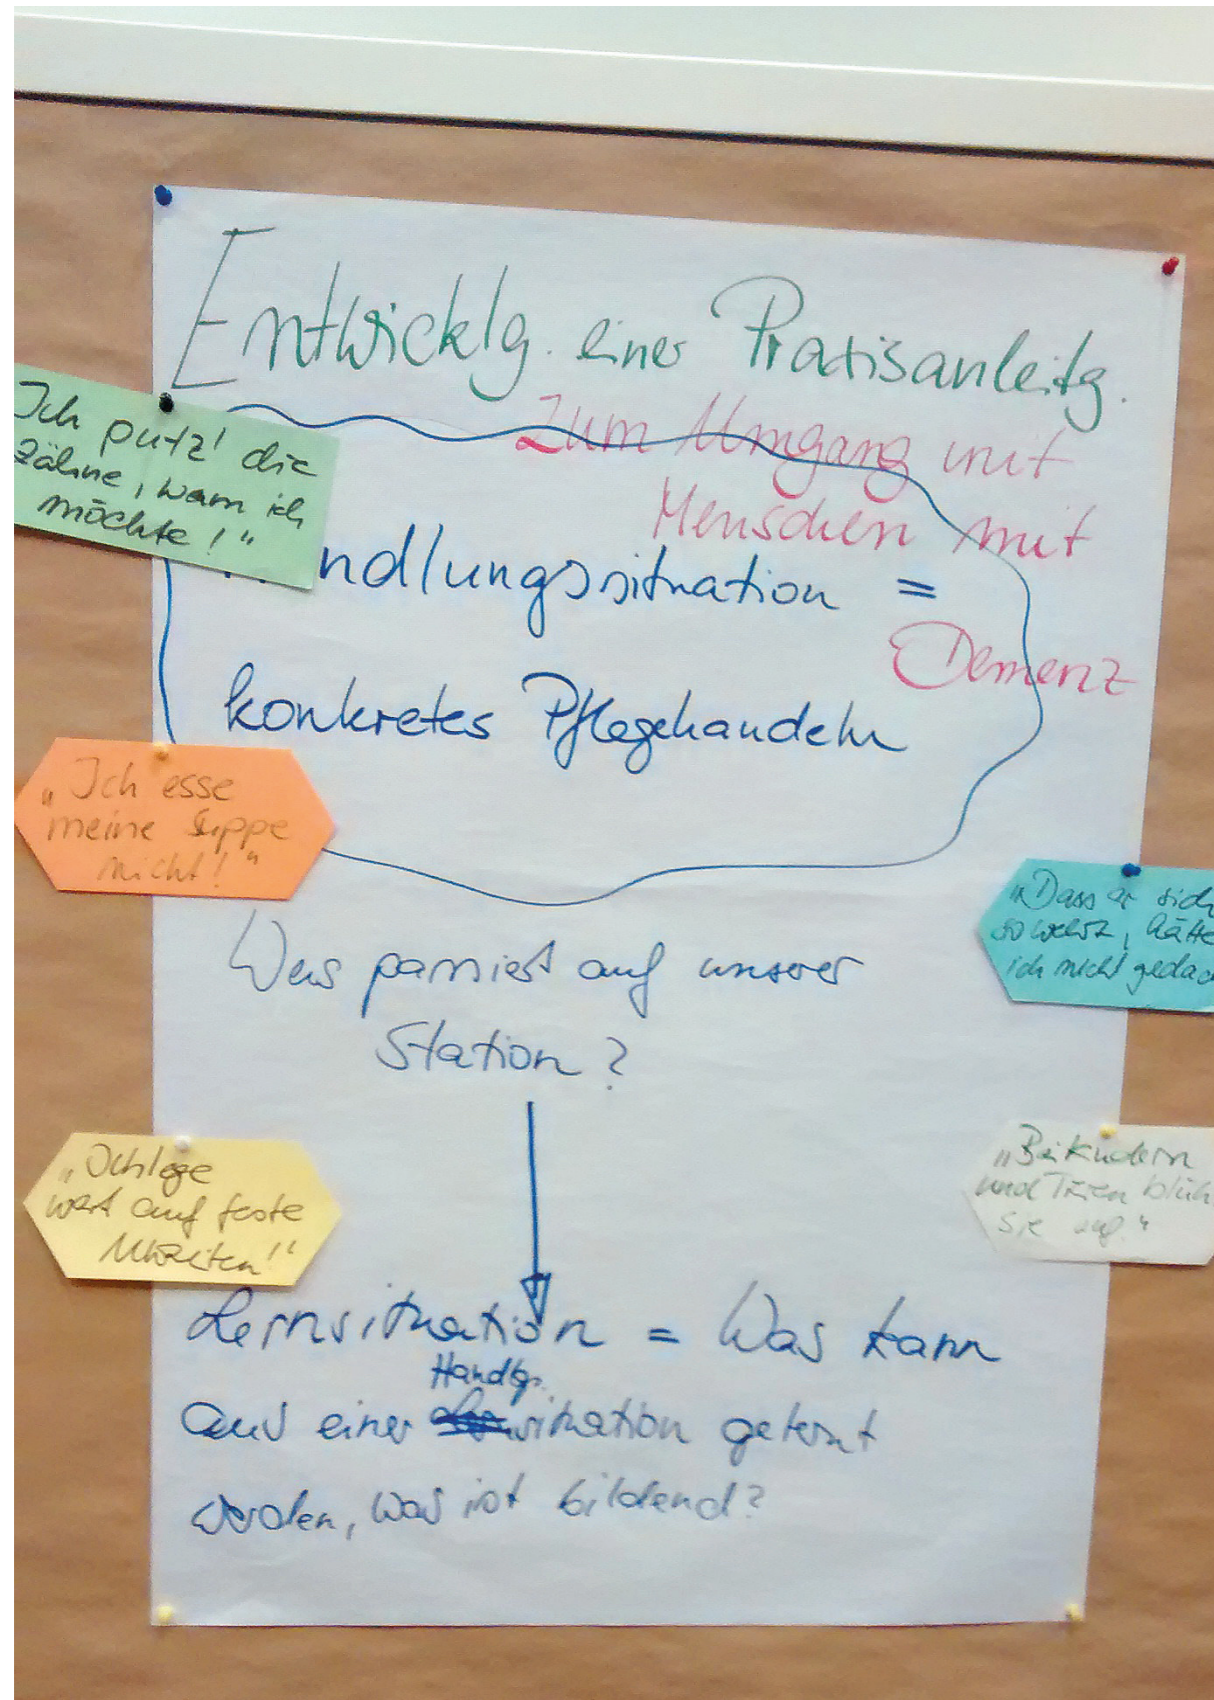 Entwicklg. einer Praxisanleitg.
zum Umgang mit
Menschen mit
Demenz
Ich putz' die
Zähne, wann ich
möchte!"
ndlungssituation =
konkretes Pflegehandeln
"Ich esse
meine Suppe
nicht!"
"Dass er sich
so wehrt, hätte
ich nicht gedac
Was passiert auf unserer
Station?
"Ich lege
wert auf feste
Uhrzeiten!"
"Bei Kindern
und Tieren blüh
sie auf."
Lernsituation = Was kann
Handlgs.
aus einer situation gelernt
werden, was ist bildend?